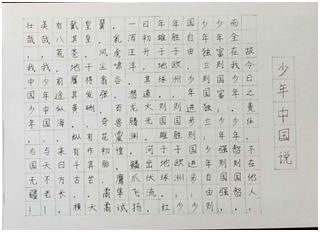 少年中国说
故今日之责任，不在他人，
而全在我少年。少年智则国智，少
年富则国富；少年强则国强，少
年独立则国独立；少年自由则
国自由；少年进步则国进步；少年
胜于欧洲则国胜于欧洲，少年
雄于地球则国雄于地球。红
日初升，其道大光。河出伏流，
一泻汪洋。潜龙腾渊，鳞爪飞扬
。乳虎啸谷，百兽震惶。鹰隼试
翼，风尘吸张。奇花初胎，矞矞
皇皇。干将发硎，有作其芒。天
戴其苍，地履其黄。纵有千古，横
有八荒。前途似海，来日方长。
美哉我少年中国，与天不老！
壮哉我中国少年，与国无疆！